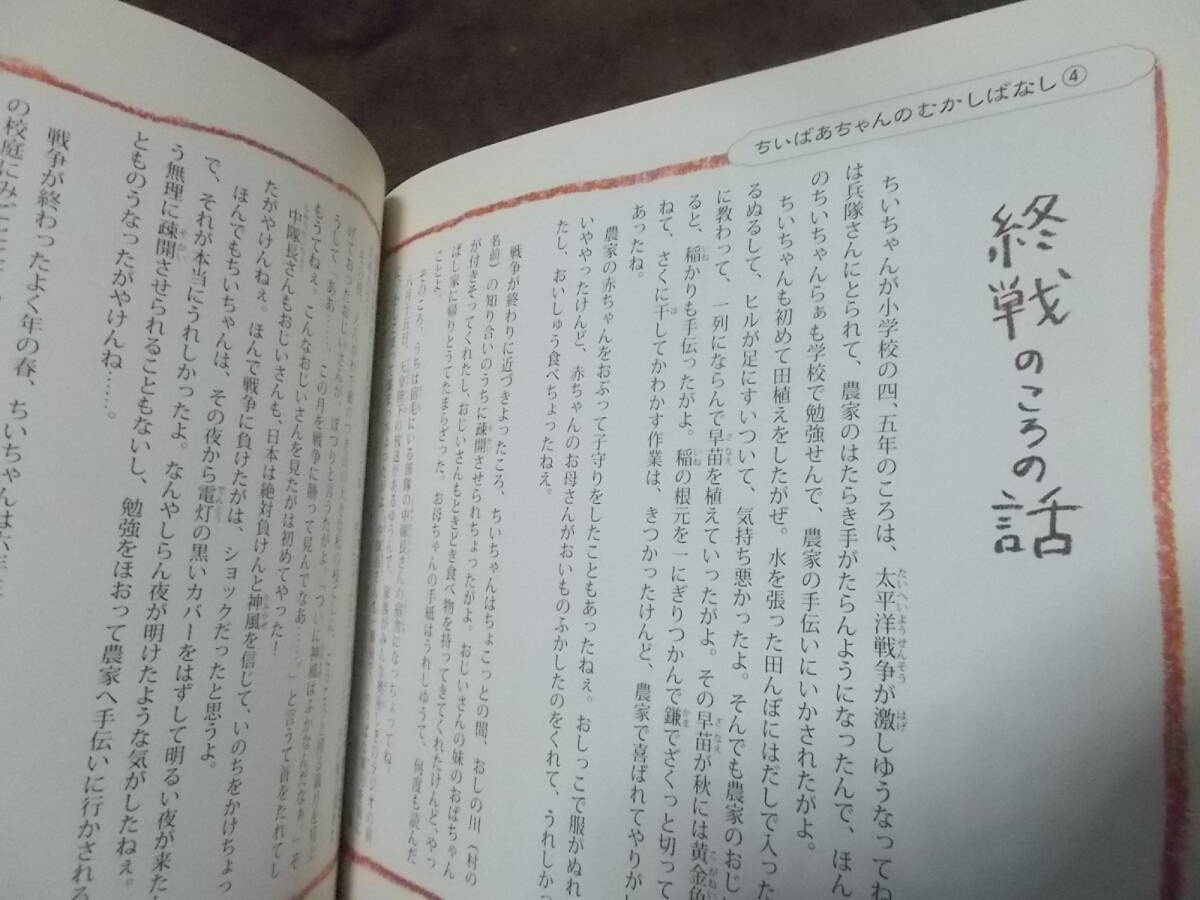 ちいばあちゃんのむかしばなし④
終戦のころの話
ちいちゃんが小学校の四、五年のころは、太平洋戦争が激しゆうなってね
は兵隊さんにとられて、農家のはたらき手がたらんようになったんで、ほん
のちいちゃんらぁも学校で勉強せんで、農家の手伝いにいかされたがよ。
ちいちゃんも初めて田植えをしたがぜ。水を張った田んぼにはだしで入った
るぬるして、ヒルが足にすいついて、気持ち悪かったよ。そんでも農家のおじ
に教わって、一列にならんで早苗を植えていったがよ。その早苗が秋には黄金色
ると、稲かりも手伝ったがよ。稲の根元を一にぎりつかんで鎌でざくっと切って
ねて、さくに干してかわかす作業は、きつかったけんど、農家で喜ばれてやりがい
あったね。
農家の赤ちゃんをおぶって子守りをしたこともあったねぇ。おしっこで服がぬれ
いややったけんど、赤ちゃんのお母さんがおいものふかしたのをくれて、うれしかっ
たし、おいしゅう食べちょったねえ。
戦争が終わりに近づきよったころ、ちいちゃんはちょこっとの間、おしの川（村の
名前）の知り合いのうちに疎開させられちょったがよ。おじいさんの妹のおばちゃん
が付きそってくれたし、おじいさんもときどき食べ物を持ってきてくれたけんど、やっ
ぱし家に帰りとうてたまらざった。お母ちゃんの手紙はうれしゅうて、何度も読んだ
ことよ。
そのころ、うちは宿毛にいる部隊の中隊長さんの宿舎になっちょってね。
八月十五日、天皇陛下の放送があるゆうんで、家族がみんな
うして「ああ……、この月を戦争に勝って見んでなあ……。」と言うて首をたれてし
もうてねぇ。こんなおじいさんを見たがは初めてやった！
中隊長さんもおじいさんも、日本は絶対負けんと神風を信じて、いのちをかけちょっ
たがやけんねぇ。ほんで戦争に負けたがは、ショックだったと思うよ。
ほんでもちいちゃんは、その夜から電灯の黒いカバーをはずして明るい夜が来た
で、それが本当にうれしかったよ。なんやしらん夜が明けたような気がしたねぇ。
う無理に疎開させられることもないし、勉強をほおって農家へ手伝いに行かされる
とものうなったがやけんね……。
戦争が終わったよく年の春、ちいちゃんは六年
の校庭にみ